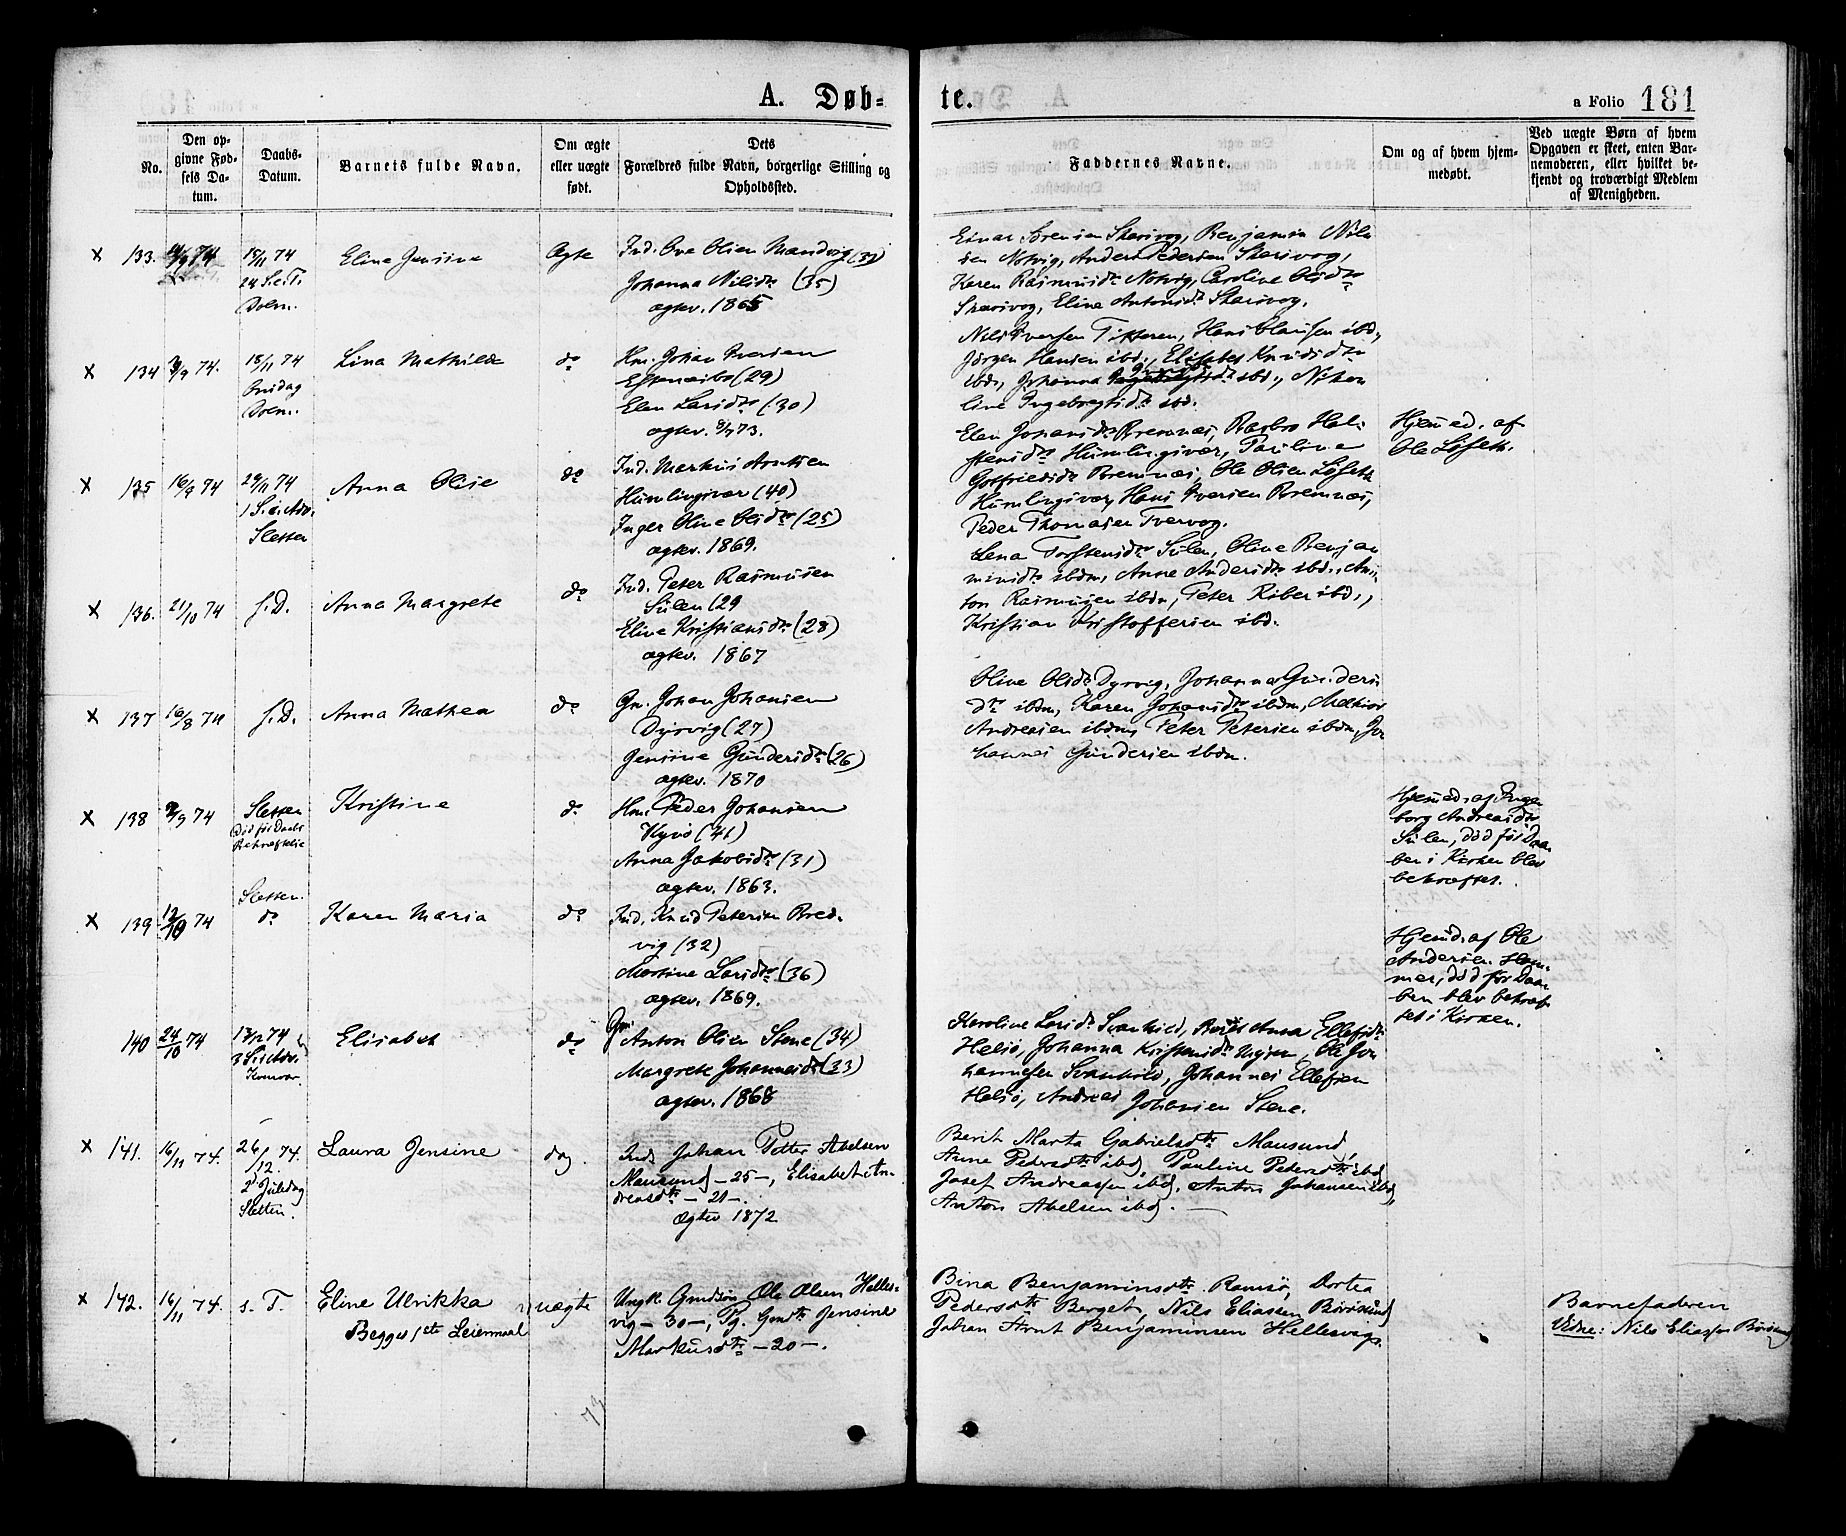 A. Døb-
te.
a Folio 181
No.
Den op-
givne Fød-
sels Da-
tum.
Daabs-
Datum.
Barnets fulde Navn.
Om ægte
eller uægte
født.
Dets
Forældres fulde Navn, borgerlige Stilling og
Opholdssted.
Faddernes Navne.
Om og af hvem hjem-
medøbt.
Ved uægte Børn af hvem
Opgaven er skeet, enten Bar-
nemoderen, eller hvilket be-
kjendt og troværdigt Medlem
af Menigheden.
x 133. 74
15/11 74
24 S.e.T.
Eline Jensine
Ægte
Ind. Ove Olsen Mandvig
Johanna Nilsdtr (35)
ægtev. 1865
Einar Sørensen Skarsvog, Benjamin Nil-
sen Notvig, Anders Pedersen Skarsvog,
Karen Rasmusdtr Notvig, Caroline Olsdtr
Skarsvog, Eline Antonsdtr Skarsvog.
x 134 74.
18/11 74
Onsdag
Lina Mathilde
do
Johan Iversen
(29)
Elen Larsdtr (30)
ægtev. 73.
Nils Iversen Hans Clausen ibd.,
Jørgen Hansen ibd., Elisabet Knudsdtr
ibd., Johanna ibd., Niko-
line Ingebregtsdtr ibd.
x 135 16/9 74
29/11 74
1 S. i Adv.
Sletten
Anna Olise
do
Ind. Markus Arntsen
Humlingsvær (40)
Inger Oline Olsdtr (25)
ægtev. 1869.
Elen Johansdtr Bremnes,
Humlingsvær, Pauline
Gotfriedsdtr Bremnes, Ole Olsen
Humlingsvær, Hans Iversen Bremnes,
Peder Thomasen Tvervog.
Hjemmed. af
Ole
x 136. 21/10 74
s. D.
Anna Margrete
do
Ind. Peter Rasmusen
Sulen (29
Eline Kristiansdtr (28)
ægtev. 1867
Lena Torstensdtr Sulen, Oline Benja-
minsdtr ibdm, Anne Andersdtr ibd., An-
ton Rasmusen ibdm, Peter ibd.,
Kristian Kristoffersen ibd.
x 137 16/8 74
s. D.
Anna Mathea
do
Gm. Johan Johansen
Dyrvig (27)
Jensine Gundersdtr (26)
ægtev. 1870
Oline Olsdtr Dyrvig, Johanna Gunders-
dtr ibdm, Karen Johansdtr ibdm, Melkior
Andreasen ibdm, Peter Petersen ibdm, Jo-
hannes Gundersen ibdm.
x 138 74
Sletten
Død før Daabs
Kristine
do
Hm. Peder Johansen
(41)
Anna Jakobsdtr (31)
ægtev. 1863.
Hjemmed. af Inge-
borg Andreasdtr
Sulen, død før Daa-
ben i Kirken blev
bekræftet.
x 139 12/10 74
Sletten.
do
Karen Maria
do
Ind. Knud Petersen Bred-
vig (32)
Martine Larsdtr (36)
ægtev. 1869.
Hjemd. af Ole
Andersen Ham-
mer, død før Daa-
ben blev bekræf-
tet i Kirken.
140 24/10 74
13/12 74
3 S. i Adv.
Elisabet
do
Gm.
Anton Olsen Stene (34)
Margrete Johannesdtr (33)
ægtev. 1868
Karoline Larsdtr Svankild, Anna Ellefsdtr
Helsø, Johanna Kristensdtr Ole Jo-
hannesen Svankild, Johannes Ellefsen
Helsø, Andreas
Johansen Stene.
x 141. 16/11 74.
26/12. 74.
2 Juledag
Sletten.
Laura Jensine
do
Ind. Johan Petter Abelsen
Mausund - 25 -, Elisabet An-
dreasdtr - 21 -.
Ægtev 1872
Berit Marta Gabrielsdtr Mausund,
Anne Pedersdtr ibd, Pauline Pedersdtr ibd
Josef Andreassen ibd, Anton Johansen ibd,
Anton Abelsen ibd. —
x 142. 16/11 74.
s. T.
Eline Ulrikka
Begges 1ste Leiermaal
uægte
Ungk. Gmdsøn Ole Olsen Helles-
vig - 30 -, Pg. Gmdtr Jensine
Markusdtr - 20 -.
Bina Benjaminsdtr Ramsø, Dortea
Pedersdtr Berget, Nils Eliassen Borøsund
Johan Arnt Benjaminsen Hellesvig.
Barnefaderen
Vidne: Nils Eliassen
73